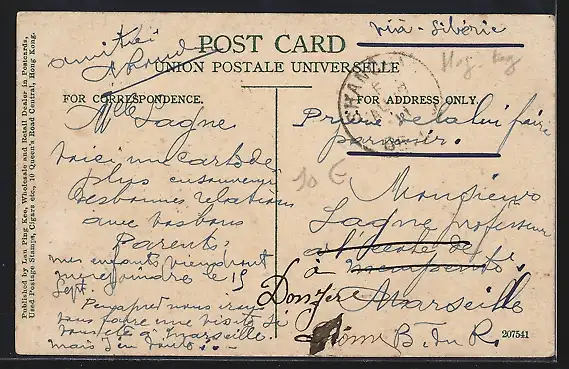 Viâ - Sibérie
amitiés
POST CARD
UNION POSTALE UNIVERSELLE
FOR CORRESPONDENCE.
FOR ADDRESS ONLY.
Published by Lau Ping Kee, Wholesale and Retail Dealer in Postcards,
Used Postage Stamps, Cigars etc., 10 Queen's Road Central, Hong Kong.
Melle Lagne
Voici une carte de
plus en souvenir
des bonnes relations
avec vos bons
Parents.
mes enfants viendront
me rejoindre le 15
Sept.
nous irons
vous faire une visite si
vous êtes à Marseille.
mais j'en doute..
SHANGHAI
Prière de la lui faire
parvenir.
Monsieur
Lagne professeur
à l'école de
à
Donzère
Marseille
Drôme B. du R.
207541